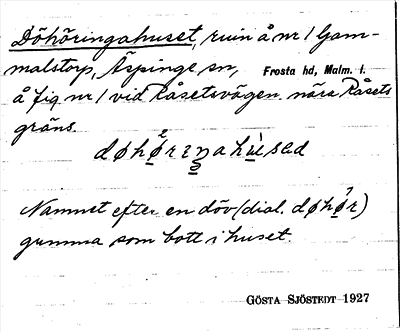 Döhöringahuset, ruin å nr 1 Gam-
malstorp, Äspinge sn, Frosta hd, Malm. l.
å fig nr 1 vid Råsetsvägen nära Råsets
gräns.
døhørıŋahused
Namnet efter en döv (dial. døhør)
gumma som bott i huset.
GÖSTA SJÖSTEDT 1927